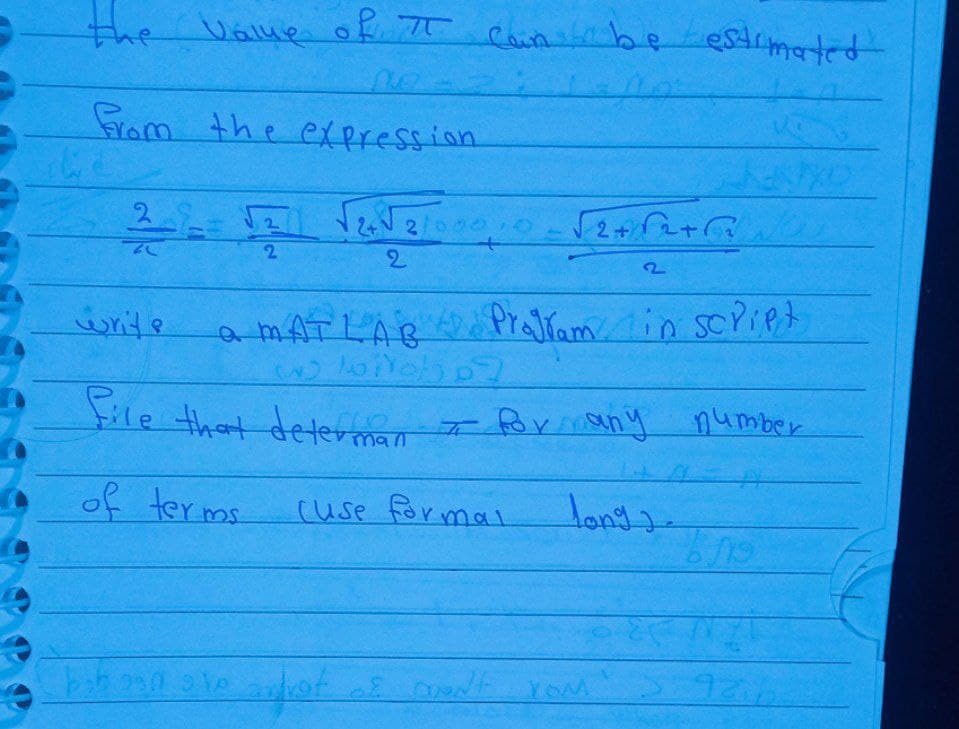 the value of π can be estimated
from the expression
2/π = √2/2 √2+√2/2 + √2+√2+√2/2
write a MATLAB Program in script
file that determan π for any number
of terms (use formal long).